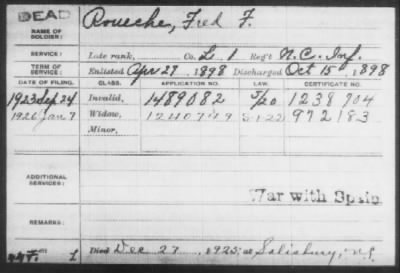 DEAD
NAME OF SOLDIER: Roueche, Fred F.
SERVICE: Late rank, Co. L 1 Reg't N.C. Inf.
TERM OF SERVICE: Enlisted Apr 27, 1898 Discharged Oct 15, 1898
DATE OF FILING. CLASS. APPLICATION NO. LAW. CERTIFICATE NO.
1923 Sep 24 Invalid, 1489082 5/20 1238904
1926 Jan 7 Widow, 1240749 5-1-22 972183
Minor,
ADDITIONAL SERVICES:
War with Spain
REMARKS:
Died Dec 27, 1925, at Salisbury, N.C.